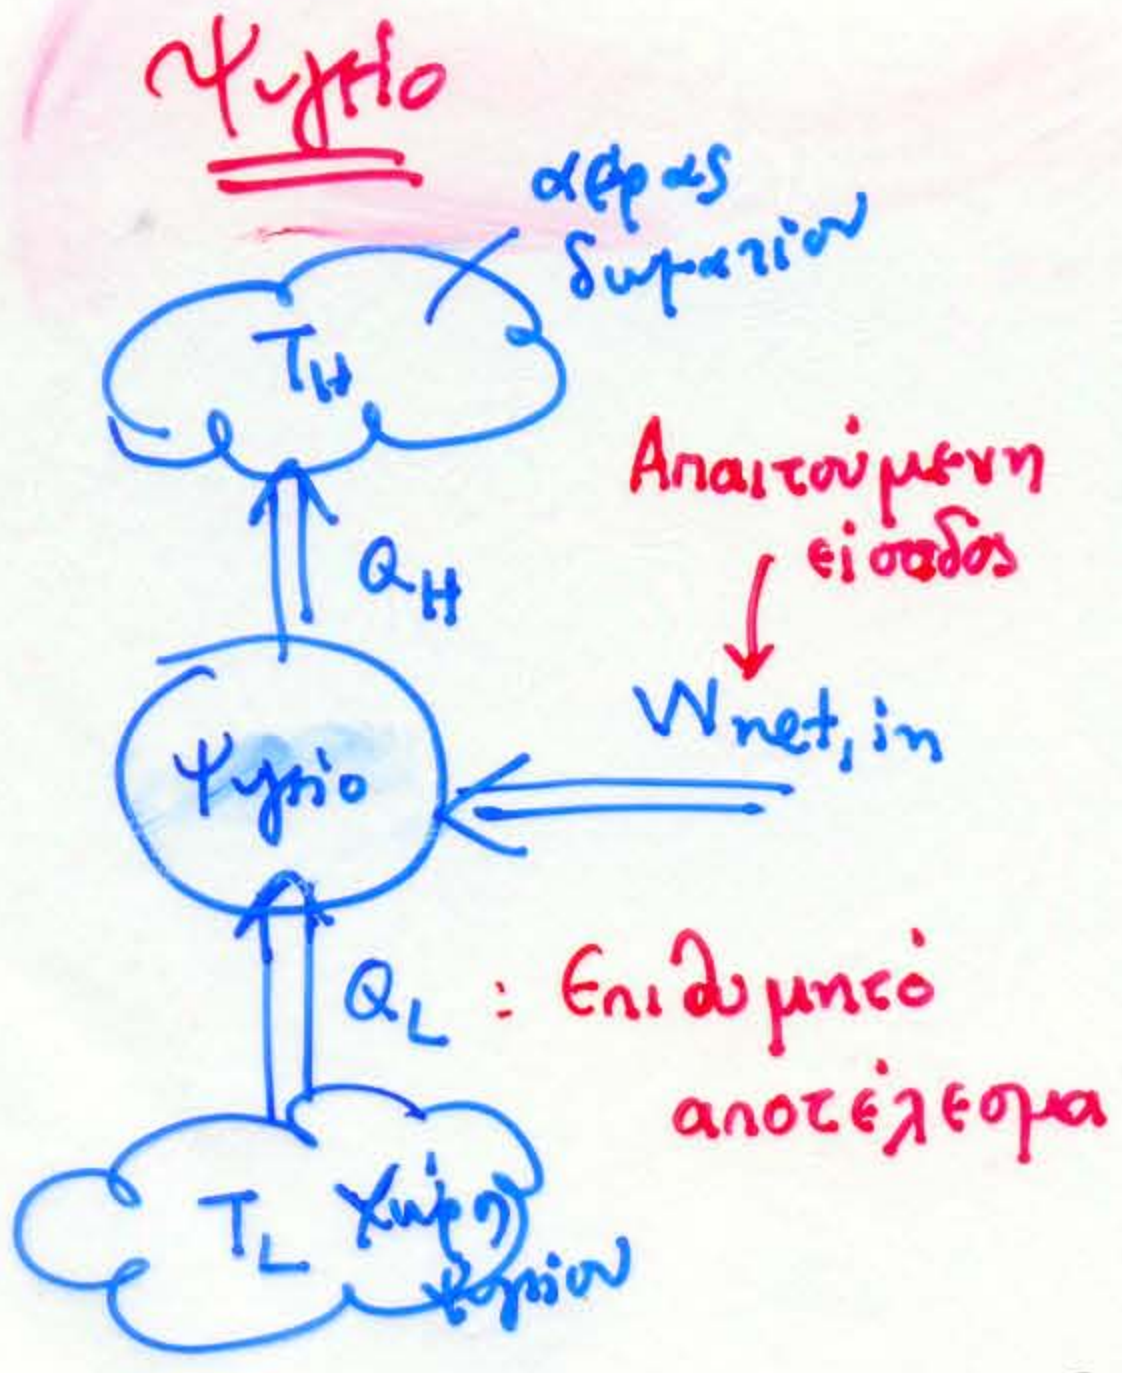 Ψυγείο
αέρας
δωματίου
T_H
Απαιτούμενη
είσοδος
Q_H
W net, in
Ψυγείο
Q_L : Επιθυμητό
αποτέλεσμα
T_L Χώρος
ψυγείου